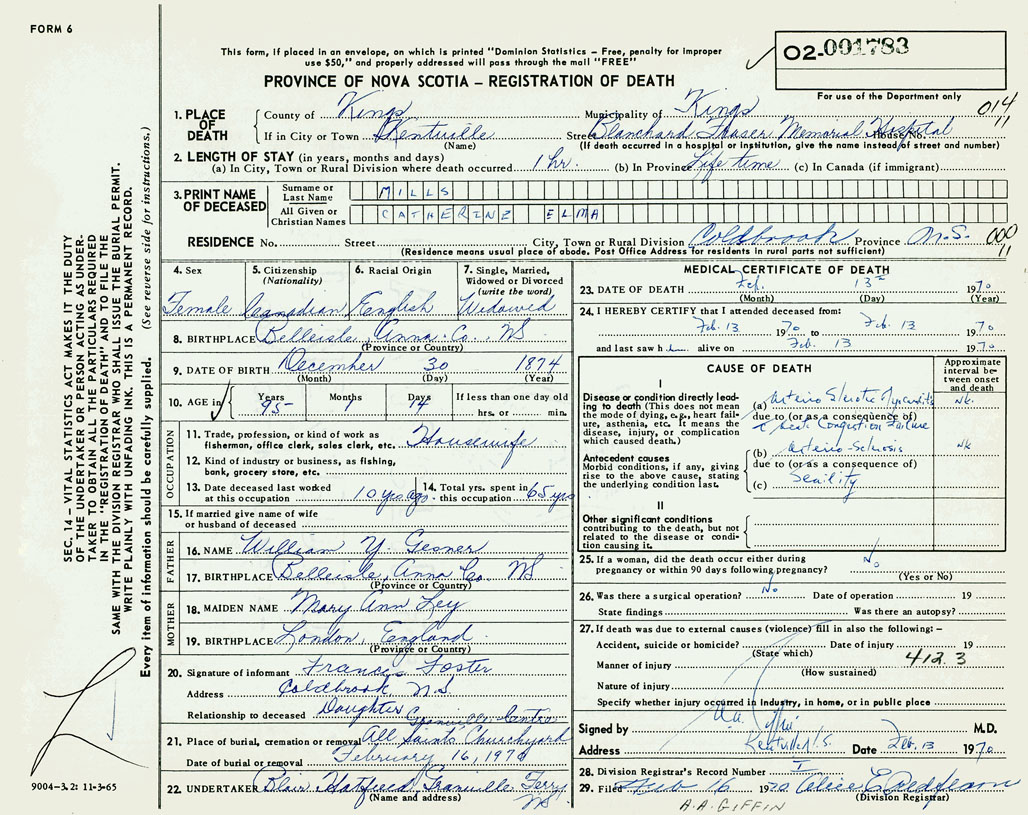 FORM 6
This form, if placed in an envelope, on which is printed "Dominion Statistics – Free, penalty for improper
use $50," and properly addressed will pass through the mail "FREE"
PROVINCE OF NOVA SCOTIA – REGISTRATION OF DEATH
02-001783
For use of the Department only
014
11
1. PLACE OF DEATH
County of Kings Municipality of Kings
If in City or Town Kentville Street Blanchard Fraser Memorial Hospital House No.
(Name) (If death occurred in a hospital or institution, give the name instead of street and number)
2. LENGTH OF STAY (in years, months and days)
(a) In City, Town or Rural Division where death occurred 1 hr. (b) In Province Life time (c) In Canada (if immigrant)
3. PRINT NAME OF DECEASED
Surname or Last Name MILLS
All Given or Christian Names CATHERINE ELMA
RESIDENCE No. Street City, Town or Rural Division Coldbrook Province N.S. 000
11
(Residence means usual place of abode. Post Office Address for residents in rural parts not sufficient)
4. Sex Female
5. Citizenship (Nationality) Canadian
6. Racial Origin English
7. Single, Married, Widowed or Divorced (write the word) Widowed
8. BIRTHPLACE Belleisle, Anna. Co. NS
(Province or Country)
9. DATE OF BIRTH December 30 1874
(Month) (Day) (Year)
10. AGE in Years 95 Months 1 Days 14 If less than one day old
hrs. or min.
OCCUPATION
11. Trade, profession, or kind of work as fisherman, office clerk, sales clerk, etc. Housewife
12. Kind of industry or business, as fishing, bank, grocery store, etc.
13. Date deceased last worked at this occupation 10 yrs ago
14. Total yrs. spent in this occupation 65 yrs
15. If married give name of wife or husband of deceased
FATHER
16. NAME William Y. Gesner
17. BIRTHPLACE Belleisle, Anna Co. NS
(Province or Country)
MOTHER
18. MAIDEN NAME Mary Ann Ley
19. BIRTHPLACE London, England
(Province or Country)
20. Signature of informant Frances Foster
Address Coldbrook, N.S.
Relationship to deceased Daughter
Granville Centre
21. Place of burial, cremation or removal All Saints Churchyard
Date of burial or removal February 16, 1970
22. UNDERTAKER Blair Hatfield, Granville Ferry
NS
(Name and address)
MEDICAL CERTIFICATE OF DEATH
23. DATE OF DEATH Feb. 13th 1970
(Month) (Day) (Year)
24. I HEREBY CERTIFY that I attended deceased from:
Feb. 13 1970 to Feb. 13 1970
and last saw h alive on Feb. 13 1970
CAUSE OF DEATH
Approximate interval between onset and death
I
Disease or condition directly leading to death (This does not mean the mode of dying, e.g., heart failure, asthenia, etc. It means the disease, injury, or complication which caused death.)
(a) Arterio Sclerotic Myocarditis Nk.
due to (or as a consequence of)
Congestion Failure
Antecedent causes
Morbid conditions, if any, giving rise to the above cause, stating the underlying condition last.
(b) Arterio-Sclerosis Nk
due to (or as a consequence of)
(c) Senility
II
Other significant conditions
contributing to the death, but not related to the disease or condition causing it.
25. If a woman, did the death occur either during pregnancy or within 90 days following pregnancy? No
(Yes or No)
26. Was there a surgical operation? No Date of operation 19
State findings Was there an autopsy?
27. If death was due to external causes (violence) fill in also the following: –
Accident, suicide or homicide? Date of injury 19
(State which) 412.3
Manner of injury
(How sustained)
Nature of injury
Specify whether injury occurred in Industry, in home, or in public place
Signed by M.D.
Address Kentville N.S. Date Feb. 13 1970
28. Division Registrar's Record Number
29. Filed Feb 16 1970 Alice E.
(Division Registrar)
A.A. GIFFIN
SEC. 14 – VITAL STATISTICS ACT MAKES IT THE DUTY
OF THE UNDERTAKER OR PERSON ACTING AS UNDER-
TAKER TO OBTAIN ALL THE PARTICULARS REQUIRED
IN THE "REGISTRATION OF DEATH" AND TO FILE THE
SAME WITH THE DIVISION REGISTRAR WHO SHALL ISSUE THE BURIAL PERMIT.
WRITE PLAINLY WITH UNFADING INK. THIS IS A PERMANENT RECORD.
Every item of information should be carefully supplied. (See reverse side for instructions.)
9004-3.2: 11-3-65